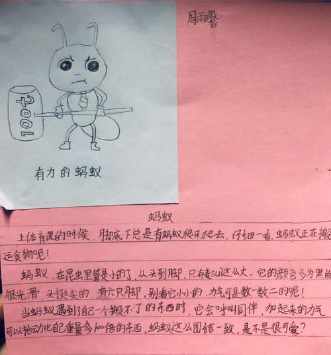 100t
有力的蚂蚁
蚂蚁
上体育课的时候,脚底下总是有蚂蚁爬来爬去,仔细一看,蚂蚁正在搬
运食物呢!
蚂蚁,在昆虫里算是小的了,从头到脚,只有这么大,它的颜色多为黑的
很光滑,六只脚,别看它小小的,力气可是数一数二的呢!
当蚂蚁遇到了自己一个搬不了的东西时,它会呼叫同伴,加起来的力气
可以搬动比自己重量多 倍的东西,蚂蚁这么团结一致,是不是很可爱?